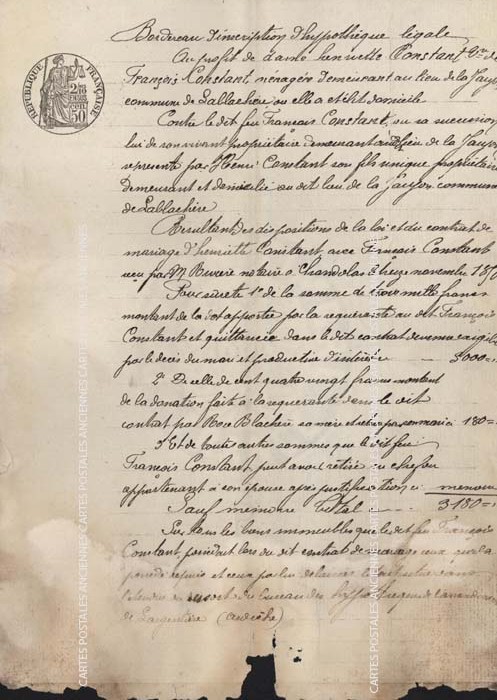 Bordereau d'inscription d'hypothèque légale
Au profit de dame henriette Constant Vve de
François Constant, ménagère demeurant au lieu de la
commune de Lablachère ou elle a élit domicile
Contre le dit feu François Constant, ou sa succession
lui de son vivant propriétaire demeurant au lieu de la
representé par Henri Constant son fils unique propriétaire
demeurant et domicilié au dit lieu de la commune
de Lablachère
Resultant des dispositions de la loi et du contrat de
mariage d'henriette Constant avec François Constant
reçu par Me notaire a Chandolas le treize novembre
Pour sureté 1o de la somme de trois mille francs
montant de la dot apportée par la requérante au dit François
Constant et quittancée dans le dit contrat devenue exigible
par le décès du mari et productive d'intérêts 3000=
2o De celle de cent quatre vingt francs montant
de la donation faite à la requérante dans le dit
contrat par Rose Blachère sa mère et par son mari ci 180=
3o Et de toute autres sommes que le dit feu
François Constant peut avoir retiré ou
appartenant à son épouse après justification ci memoire
Sauf mémoire total 3180=
Sur tous les biens immeubles que le dit feu François
Constant, lors du dit contrat de mariage ceux
depuis et ceux
ressort du bureau des hypothèques de
de Largentière (ardèche)
REPUBLIQUE FRANÇAISE
50
CARTES POSTALES ANCIENNES CARTES POSTALES ANCIENNES
CARTES POSTALES ANCIENNES CARTES POSTALES ANCIENNES